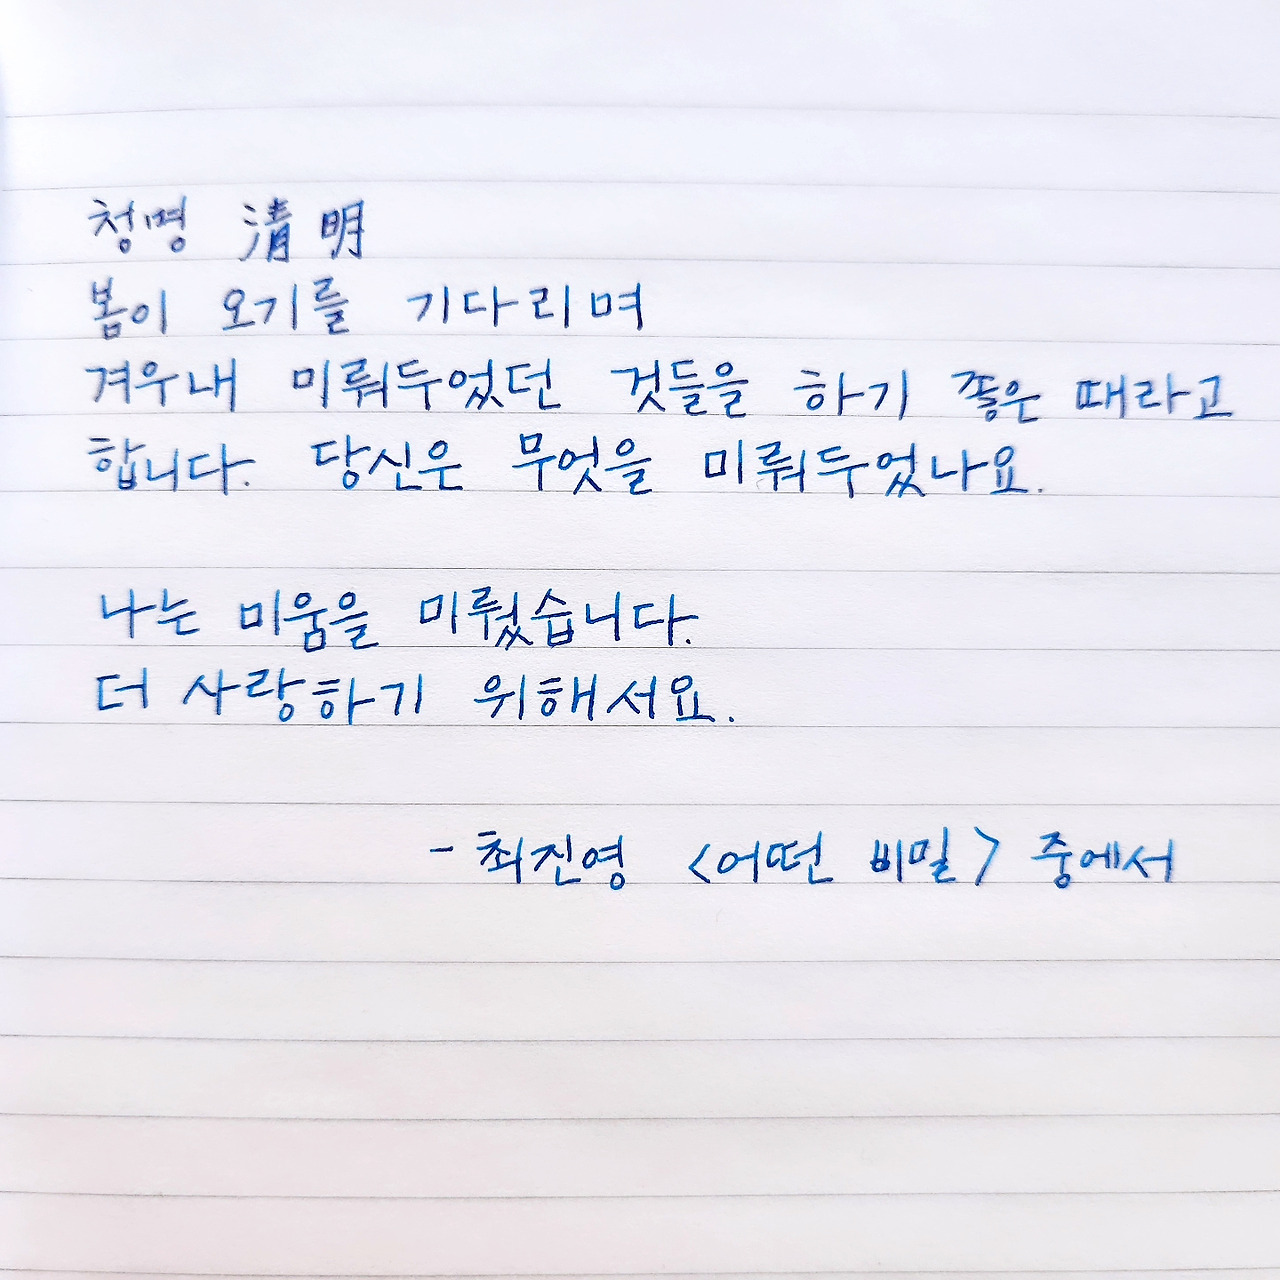 청명 清明
봄이 오기를 기다리며
겨우내 미뤄두었던 것들을 하기 좋은 때라고
합니다. 당신은 무엇을 미뤄두었나요.
나는 미움을 미뤘습니다.
더 사랑하기 위해서요.
- 최진영 <어떤 비밀> 중에서